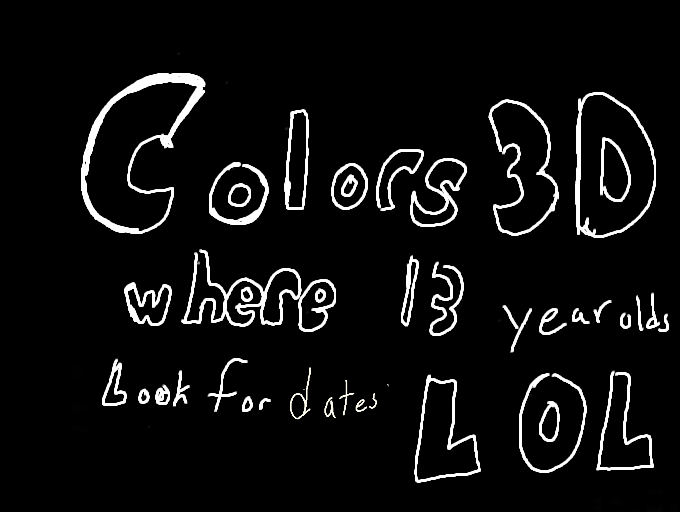 Colors 3D
where 13 year olds
Look for dates LOL